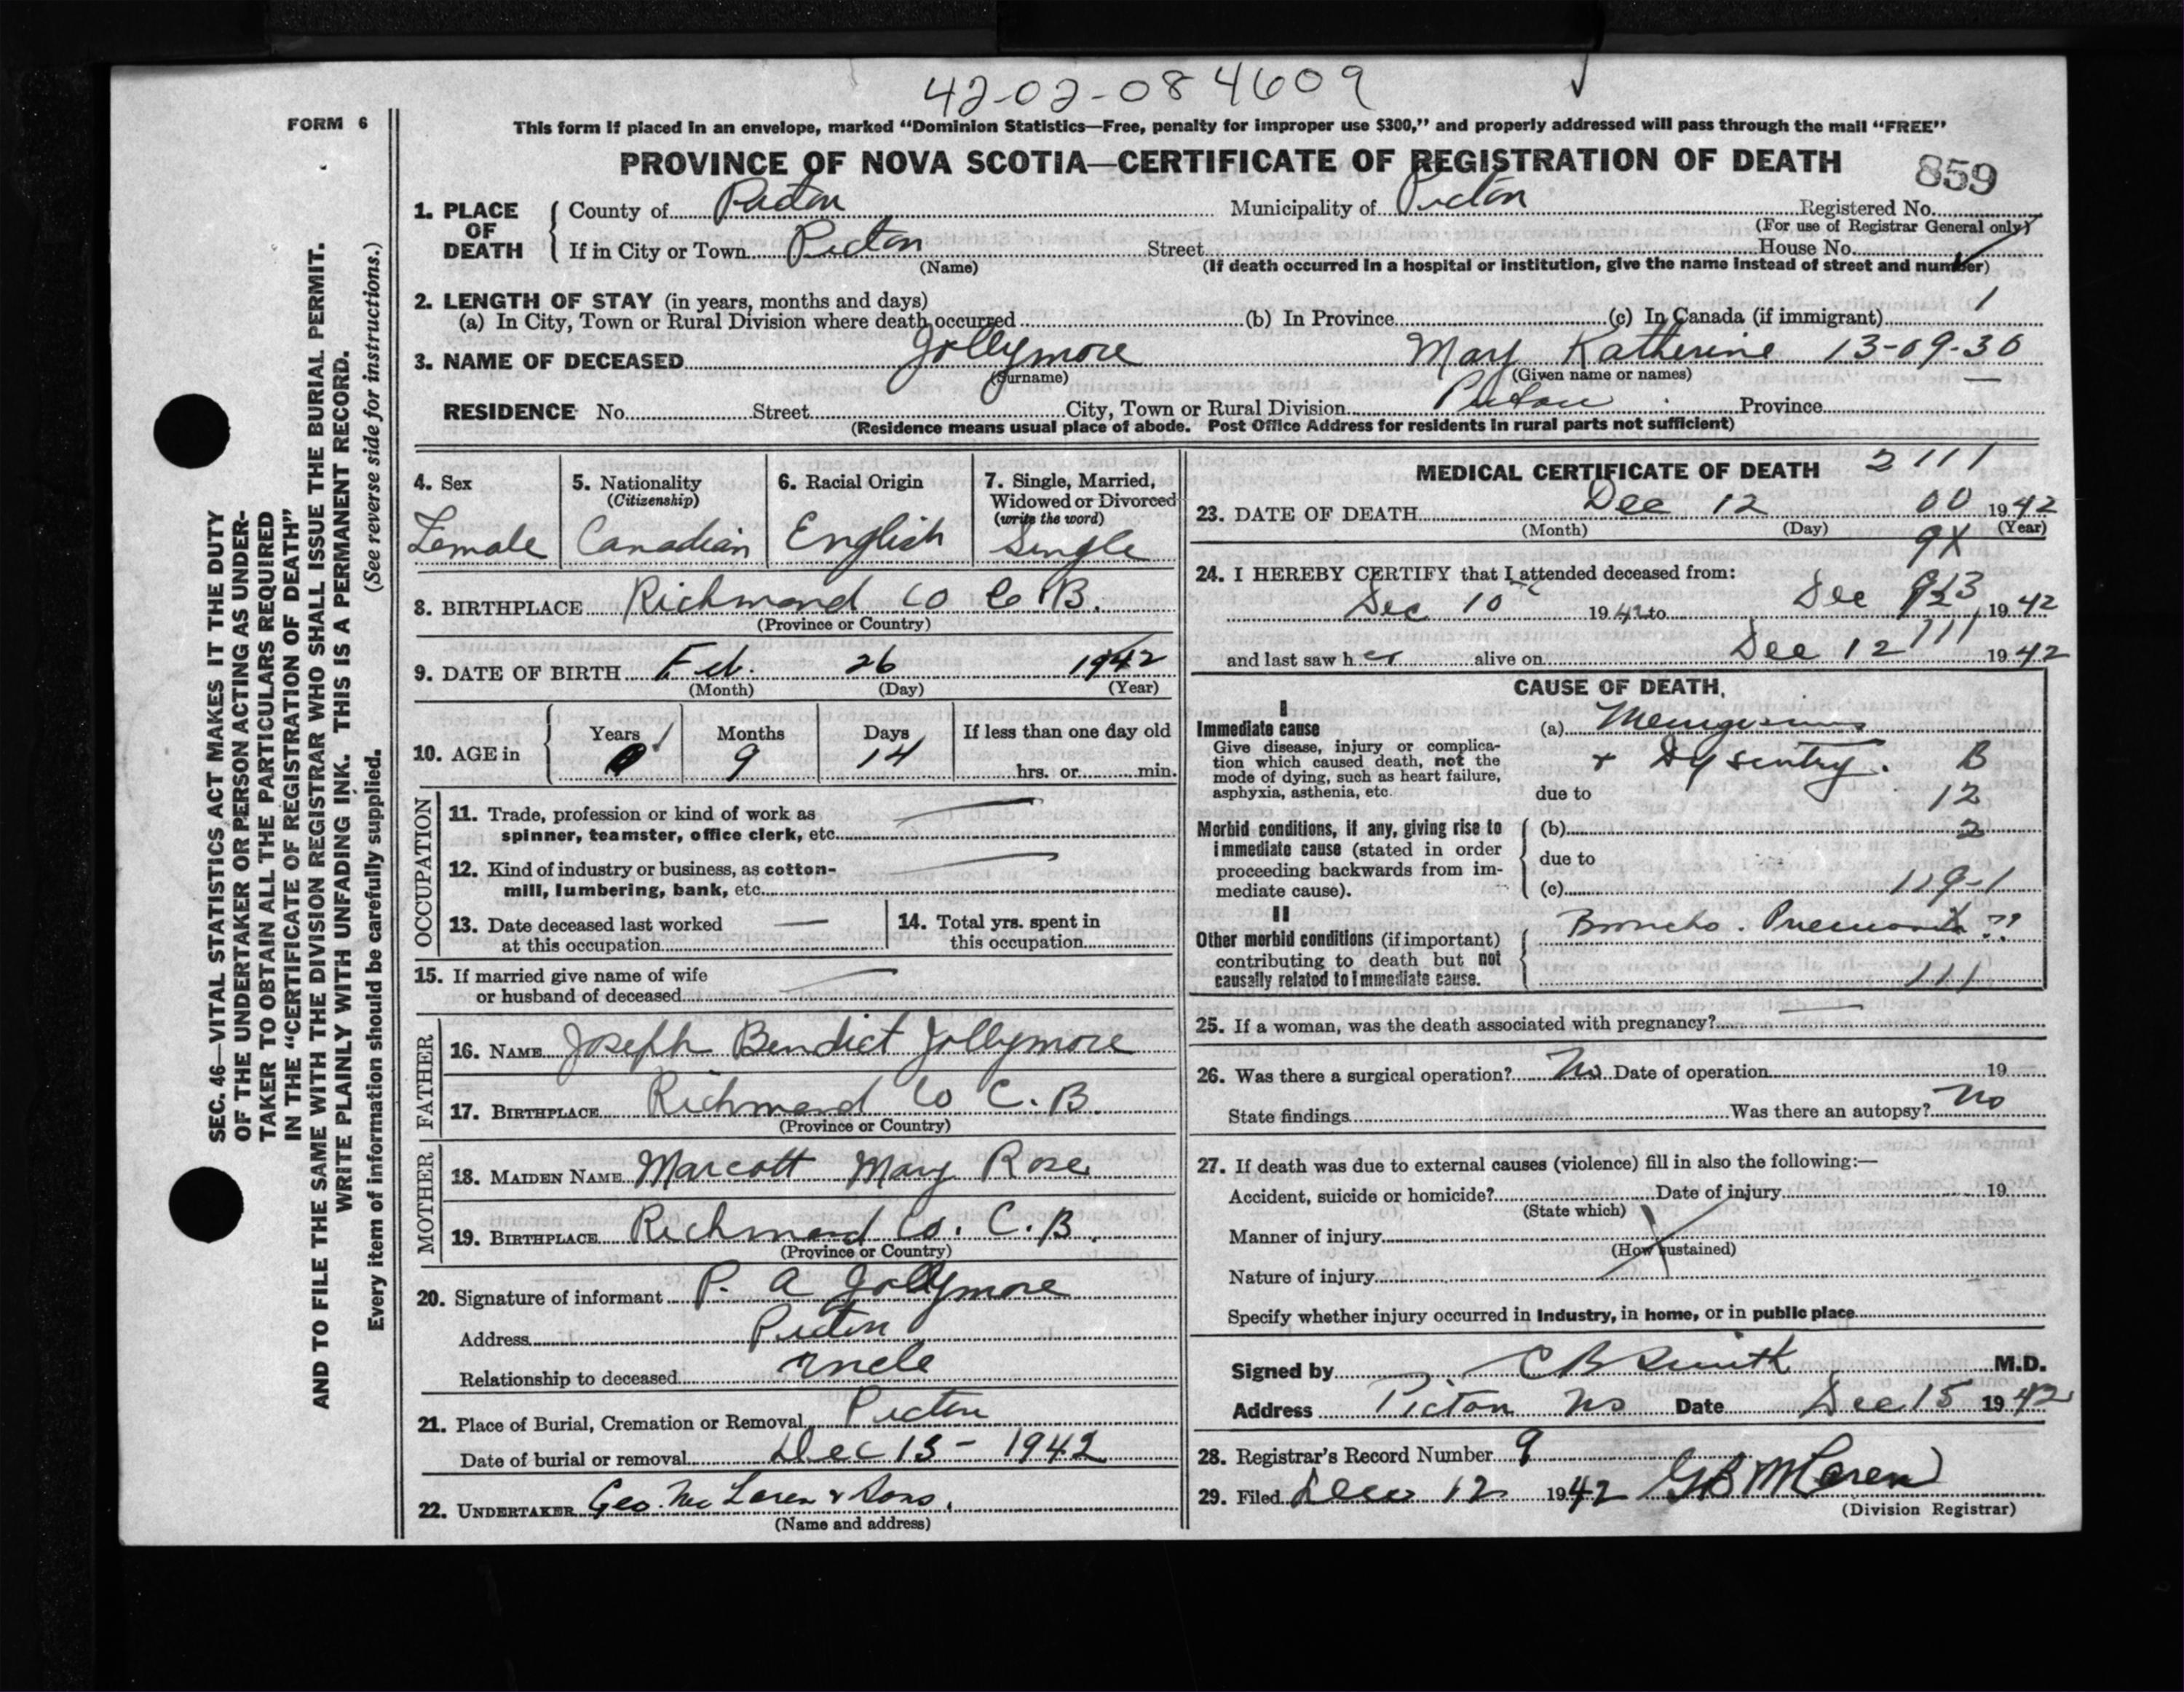 42-02-084609
FORM 6
This form if placed in an envelope, marked "Dominion Statistics—Free, penalty for improper use $300," and properly addressed will pass through the mail "FREE"
PROVINCE OF NOVA SCOTIA—CERTIFICATE OF REGISTRATION OF DEATH
859
1. PLACE OF DEATH
County of Pictou Municipality of Pictou Registered No.
(For use of Registrar General only)
If in City or Town Pictou Street House No.
(Name) (If death occurred in a hospital or institution, give the name instead of street and number)
2. LENGTH OF STAY (in years, months and days) 1
(a) In City, Town or Rural Division where death occurred (b) In Province (c) In Canada (if immigrant)
3. NAME OF DECEASED Jollymore Mary Katherine 13-09-30
(Surname) (Given name or names)
RESIDENCE No. Street City, Town or Rural Division Pictou Province
(Residence means usual place of abode. Post Office Address for residents in rural parts not sufficient)
4. Sex
Female
5. Nationality
(Citizenship)
Canadian
6. Racial Origin
English
7. Single, Married,
Widowed or Divorced
(write the word)
Single
8. BIRTHPLACE Richmond Co C B.
(Province or Country)
9. DATE OF BIRTH Feb. 26 1942
(Month) (Day) (Year)
10. AGE in
Years Months Days If less than one day old
0 9 14 hrs. or min.
OCCUPATION
11. Trade, profession or kind of work as
spinner, teamster, office clerk, etc.
12. Kind of industry or business, as cotton-
mill, lumbering, bank, etc.
13. Date deceased last worked
at this occupation
14. Total yrs. spent in
this occupation
15. If married give name of wife
or husband of deceased
FATHER
16. NAME Joseph Bendict Jollymore
17. BIRTHPLACE Richmond Co C. B.
(Province or Country)
MOTHER
18. MAIDEN NAME Marcott Mary Rose
19. BIRTHPLACE Richmond Co. C. B.
(Province or Country)
20. Signature of informant P. A Jollymore
Address Pictou
Relationship to deceased Uncle
21. Place of Burial, Cremation or Removal Pictou
Date of burial or removal Dec 13 - 1942
22. UNDERTAKER Geo. McLaren & Sons.
(Name and address)
MEDICAL CERTIFICATE OF DEATH 2111
23. DATE OF DEATH Dec 12 00 1942
(Month) (Day) (Year)
9X
24. I HEREBY CERTIFY that I attended deceased from:
Dec 10 1942 to Dec 1942
111
and last saw her alive on Dec 12 1942
CAUSE OF DEATH
I
Immediate cause
Give disease, injury or complica-
tion which caused death, not the
mode of dying, such as heart failure,
asphyxia, asthenia, etc.
(a)
+ Dysentry. B
due to 12
Morbid conditions, if any, giving rise to
immediate cause (stated in order
proceeding backwards from im-
mediate cause).
(b) 2
due to
(c) 119-1
II
Other morbid conditions (if important)
contributing to death but not
causally related to immediate cause.
Broncho. Pneumonia ??
111
25. If a woman, was the death associated with pregnancy?
26. Was there a surgical operation? No Date of operation 19
State findings Was there an autopsy? No
27. If death was due to external causes (violence) fill in also the following:—
Accident, suicide or homicide? Date of injury 19
(State which)
Manner of injury
(How sustained)
Nature of injury
Specify whether injury occurred in industry, in home, or in public place
Signed by C B Smith M.D.
Address Pictou NS Date Dec 15 1942
28. Registrar's Record Number 9
29. Filed Dec 12 1942 GB McLaren
(Division Registrar)
SEC. 46—VITAL STATISTICS ACT MAKES IT THE DUTY
OF THE UNDERTAKER OR PERSON ACTING AS UNDER-
TAKER TO OBTAIN ALL THE PARTICULARS REQUIRED
IN THE "CERTIFICATE OF REGISTRATION OF DEATH"
AND TO FILE THE SAME WITH THE DIVISION REGISTRAR WHO SHALL ISSUE THE BURIAL PERMIT.
WRITE PLAINLY WITH UNFADING INK. THIS IS A PERMANENT RECORD.
Every item of information should be carefully supplied. (See reverse side for instructions.)